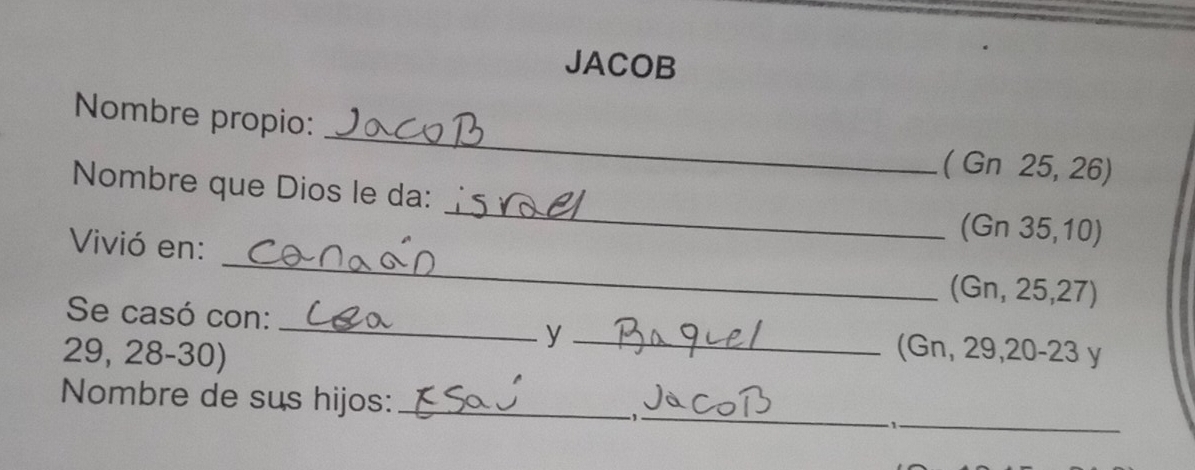 JACOB
Nombre propio: JacoB (Gn 25, 26)
Nombre que Dios le da: israel (Gn 35,10)
Vivió en: Canaán (Gn, 25,27)
Se casó con: Lea y Raquel (Gn, 29,20-23 y
29, 28-30)
Nombre de sus hijos: Esaú, JacoB,